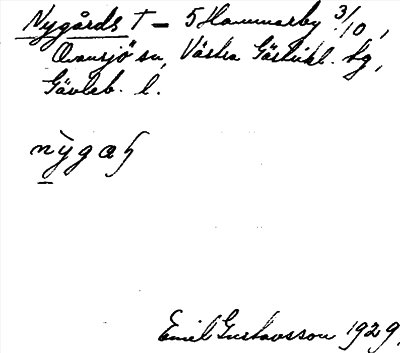 Nygårds † – 5 Hammarby 3/10,
Ovansjö sn, Västra Gästrikl. tg,
Gävleb. l.
nygaɧ
Emil Gustavsson 1929.